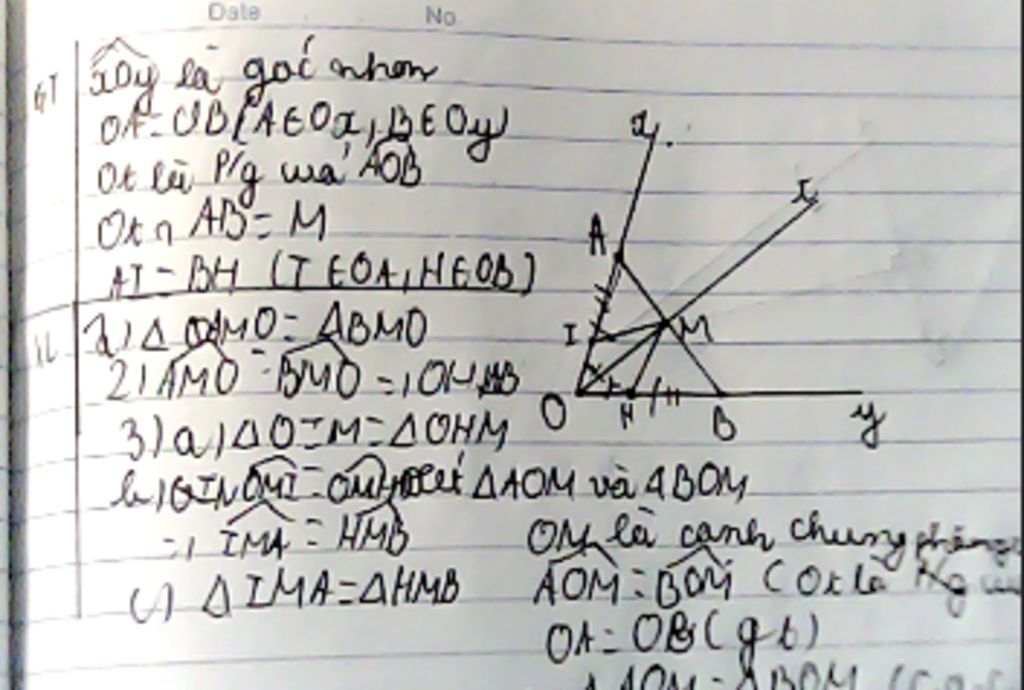 Date No
GT
xOy là góc nhọn
OA = OB (A ∈ Ox, B ∈ Oy)
Ot là P/g của AOB
Ot ∩ AB = M
AI = BH (I ∈ OA, H ∈ OB)
KL
1) Δ AMO = ΔBMO
2) AMO = BMO =) OM AB
3) a) Δ OIM = ΔOHM
b) OMI =
=) IMA = HMB
c) Δ IMA = ΔHMB
x
A
I
M
O
H
B
y
xét ΔAOM và ΔBOM
OM là cạnh chung
AOM = BOM (Ot là P/g
OA = OB (gt)
ΔAOM = ΔBOM (c.g.c